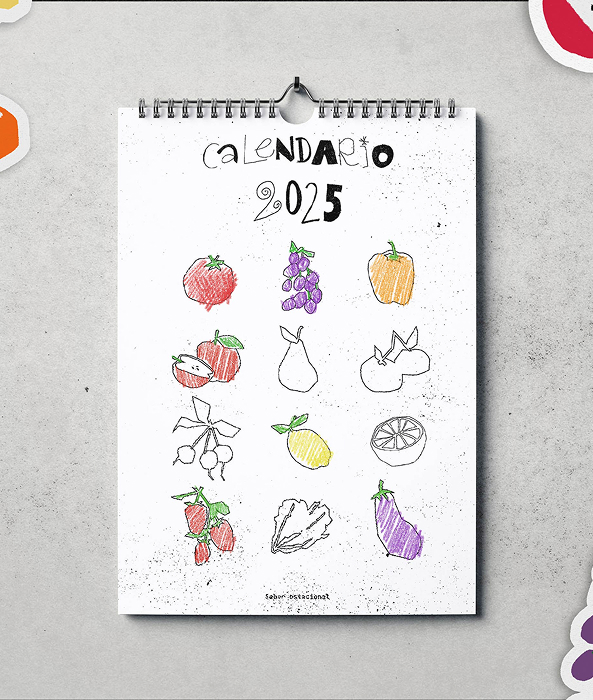 CaLeNDARiO
2025
Sabor estacional